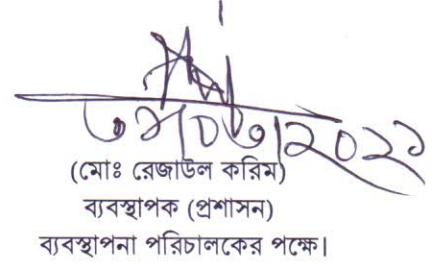 (মোঃ রেজাউল করিম)
ব্যবস্থাপক (প্রশাসন)
ব্যবস্থাপনা পরিচালকের পক্ষে।